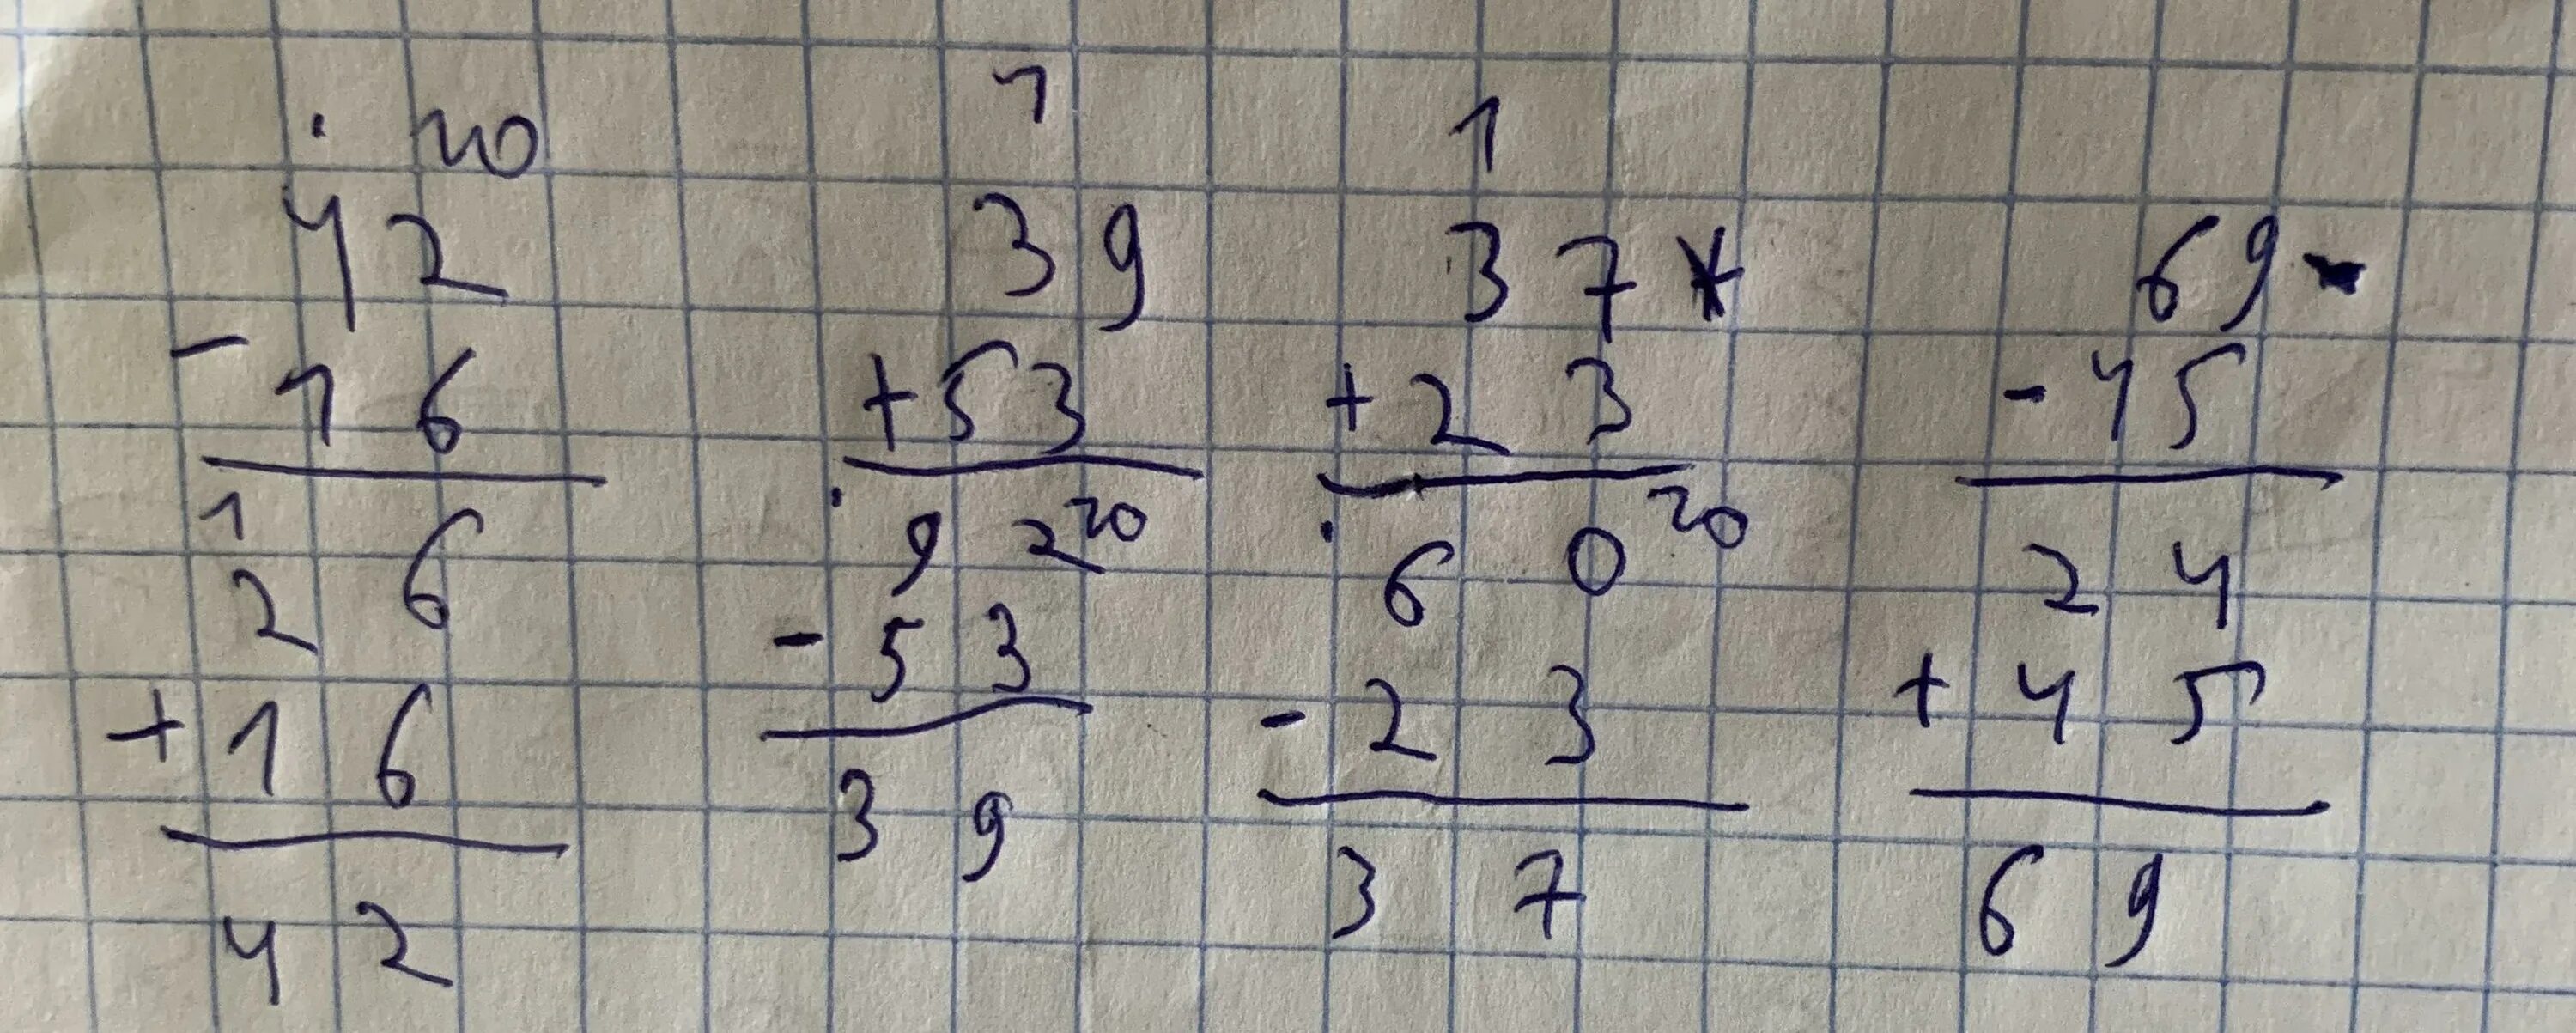 . 10
42
- 16
1
26
+ 16
42
1
39
+ 53
. 92 10
- 53
39
1
37
+ 23
. 60 10
- 23
37
69
- 45
24
+ 45
69